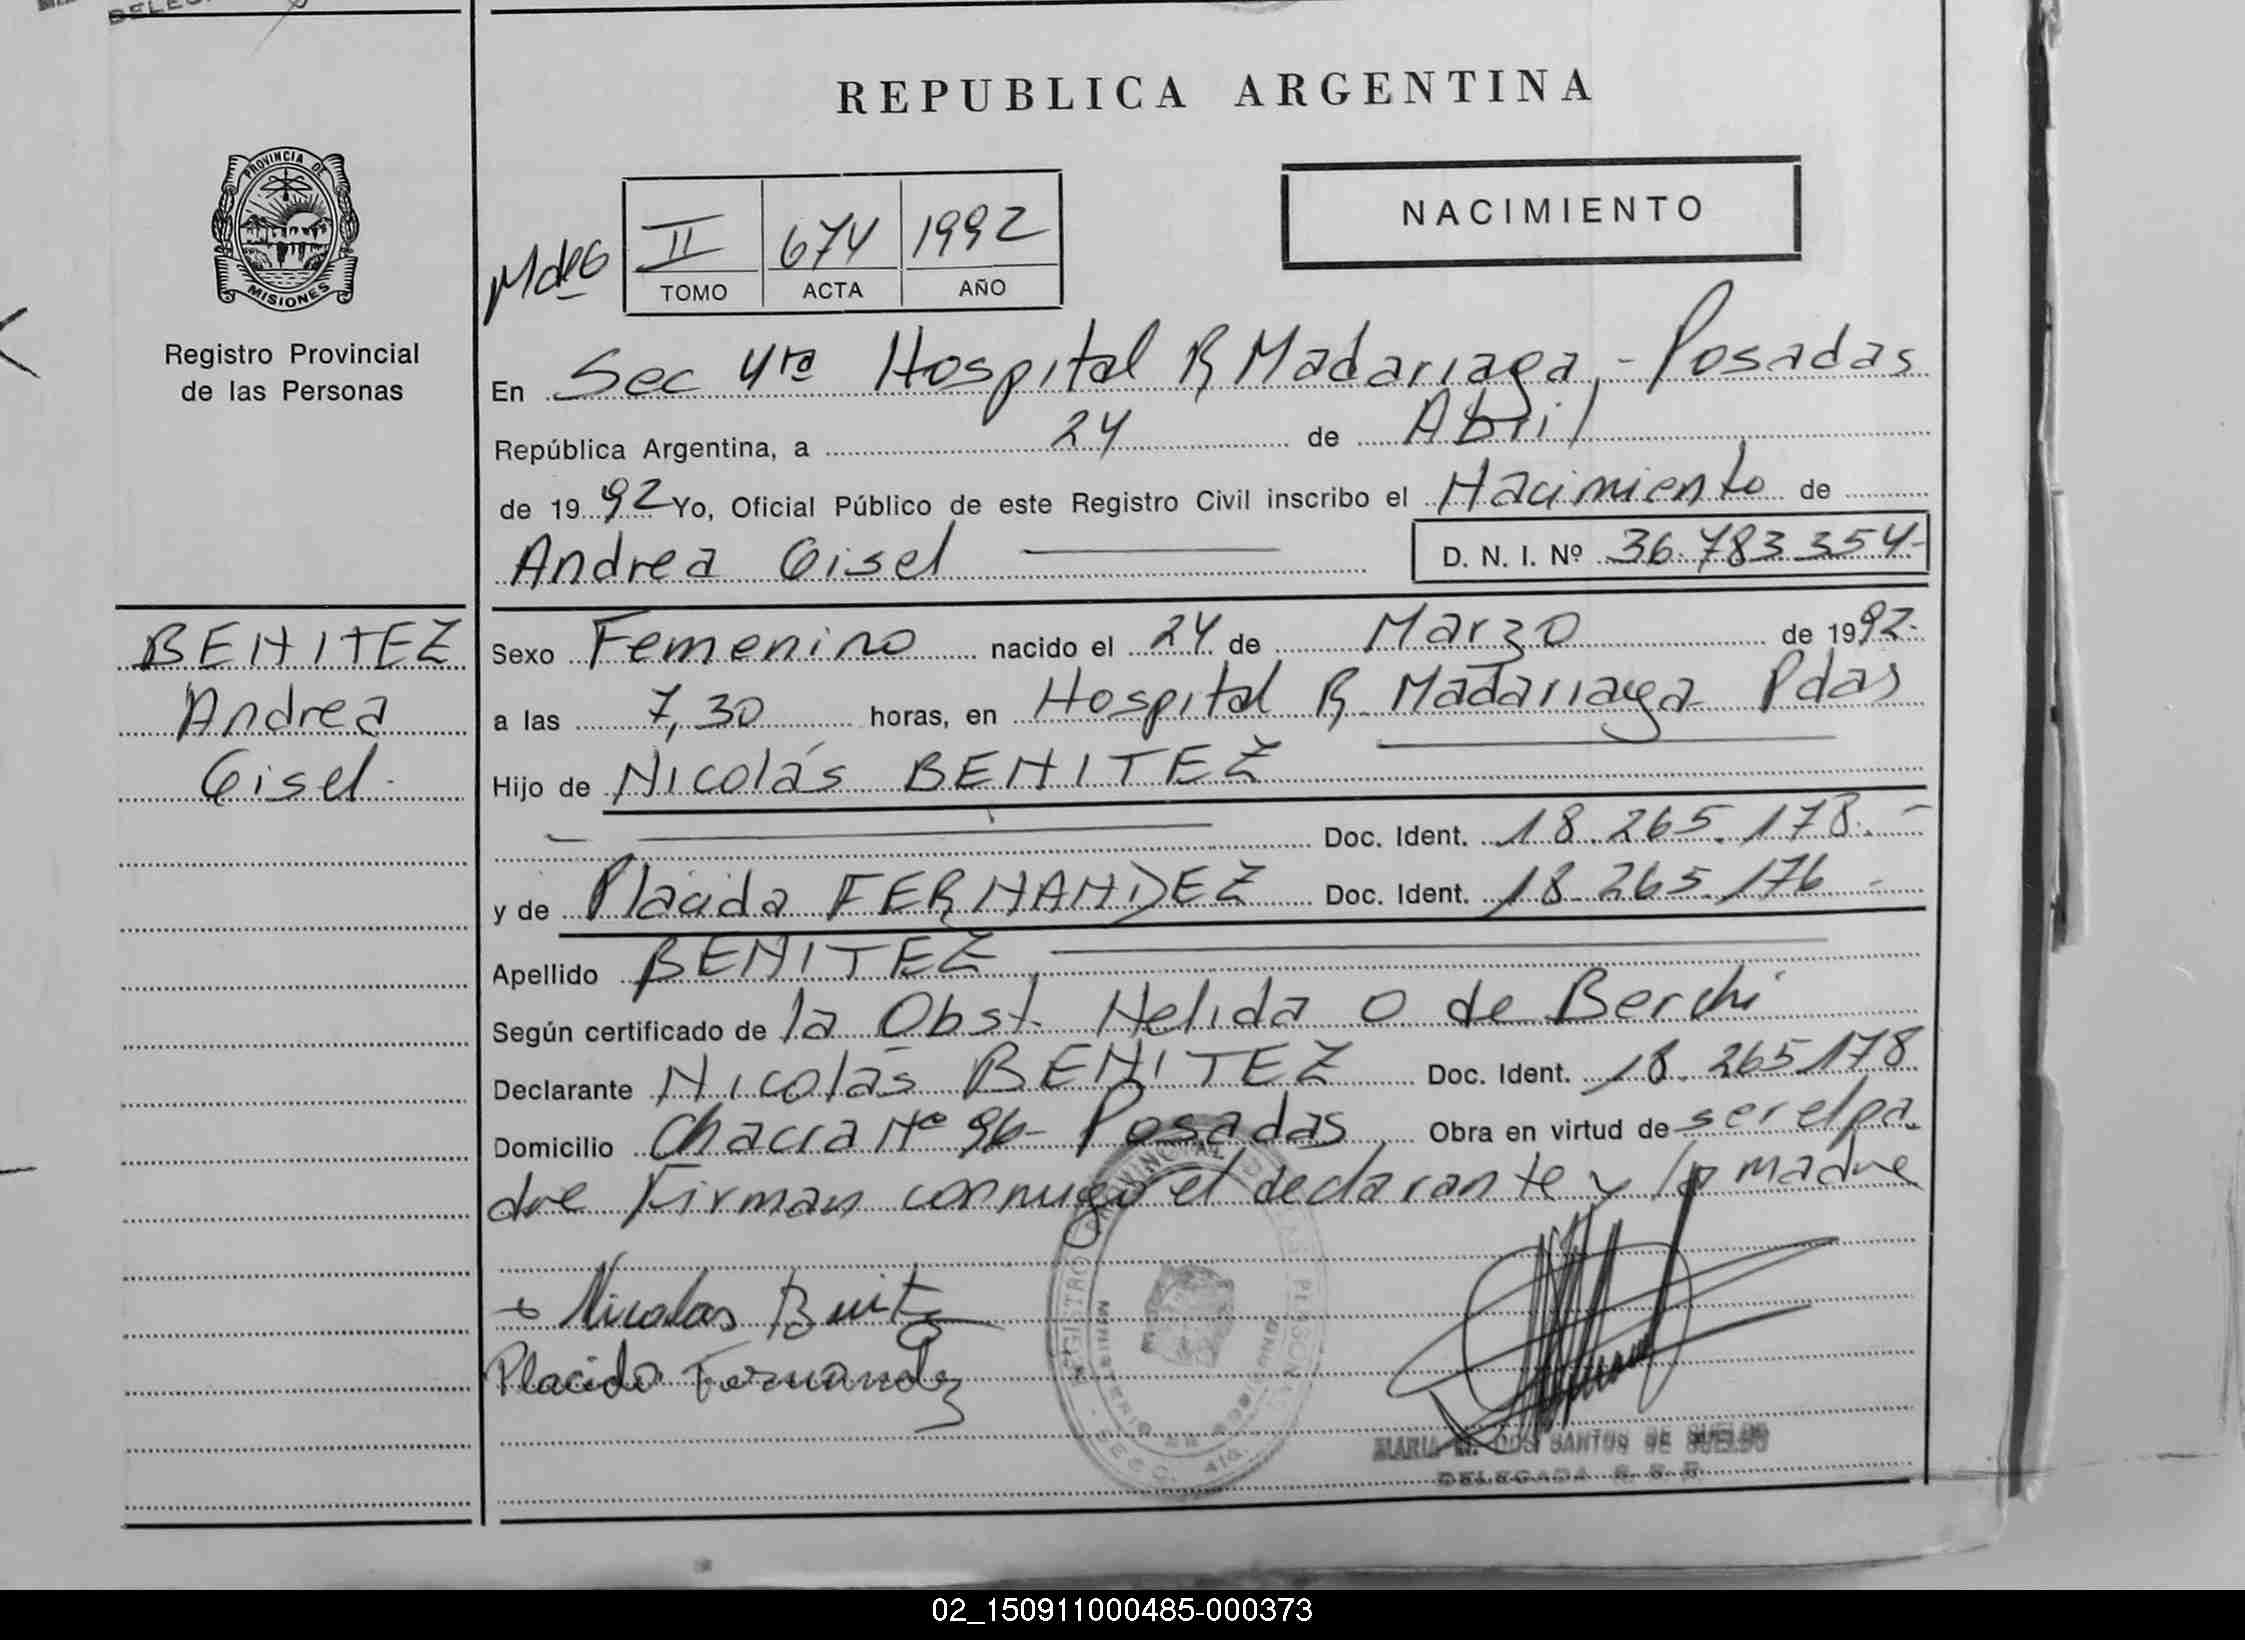 REPUBLICA ARGENTINA
PROVINCIA DE
MISIONES
Registro Provincial
de las Personas
NACIMIENTO
II 674 1992
TOMO ACTA AÑO
En Sec 4ta Hospital R Madariaga, - Posadas
República Argentina, a 24 de Abril
de 1992 Yo, Oficial Público de este Registro Civil inscribo el Nacimiento de
Andrea Gisel D. N. I. Nº 36.783.354-
BENITEZ
Andrea
Gisel.
Sexo Femenino nacido el 24 de Marzo de 1992.
a las 7,30 horas, en Hospital R Madariaga Pdas
Hijo de Nicolás BENITEZ
Doc. Ident. 18.265.178.-
y de Plácida FERNANDEZ Doc. Ident. 18.265.176-
Apellido BENITEZ
Según certificado de la Obst. Nelida O de Berchi
Declarante Nicolás BENITEZ Doc. Ident. 18.265178
Domicilio Chacra Nº 96- Posadas Obra en virtud de ser el pa-
dre Firman conmigo el declarante y la madre
Nicolas Benitez
Placida Fernandez
REGISTRO PROVINCIAL DE LAS PERSONAS
MINISTERIO DE GOBIERNO
SECC. 4ta.
MARIA DOS SANTOS DE
DELEGADA
02_150911000485-000373